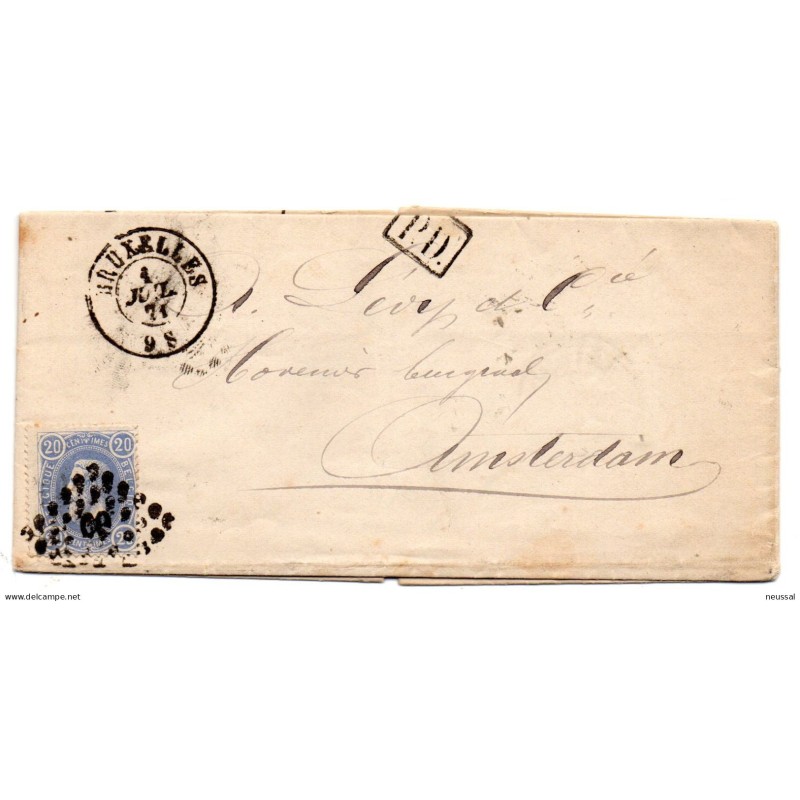 BRUXELLES
JUIL
71
9 S
P.D.
Lévy & Cie
Amsterdam
20 CENTIMES 20
BELGIQUE
20 CENTIMES 20
60
www.delcampe.net
neussal